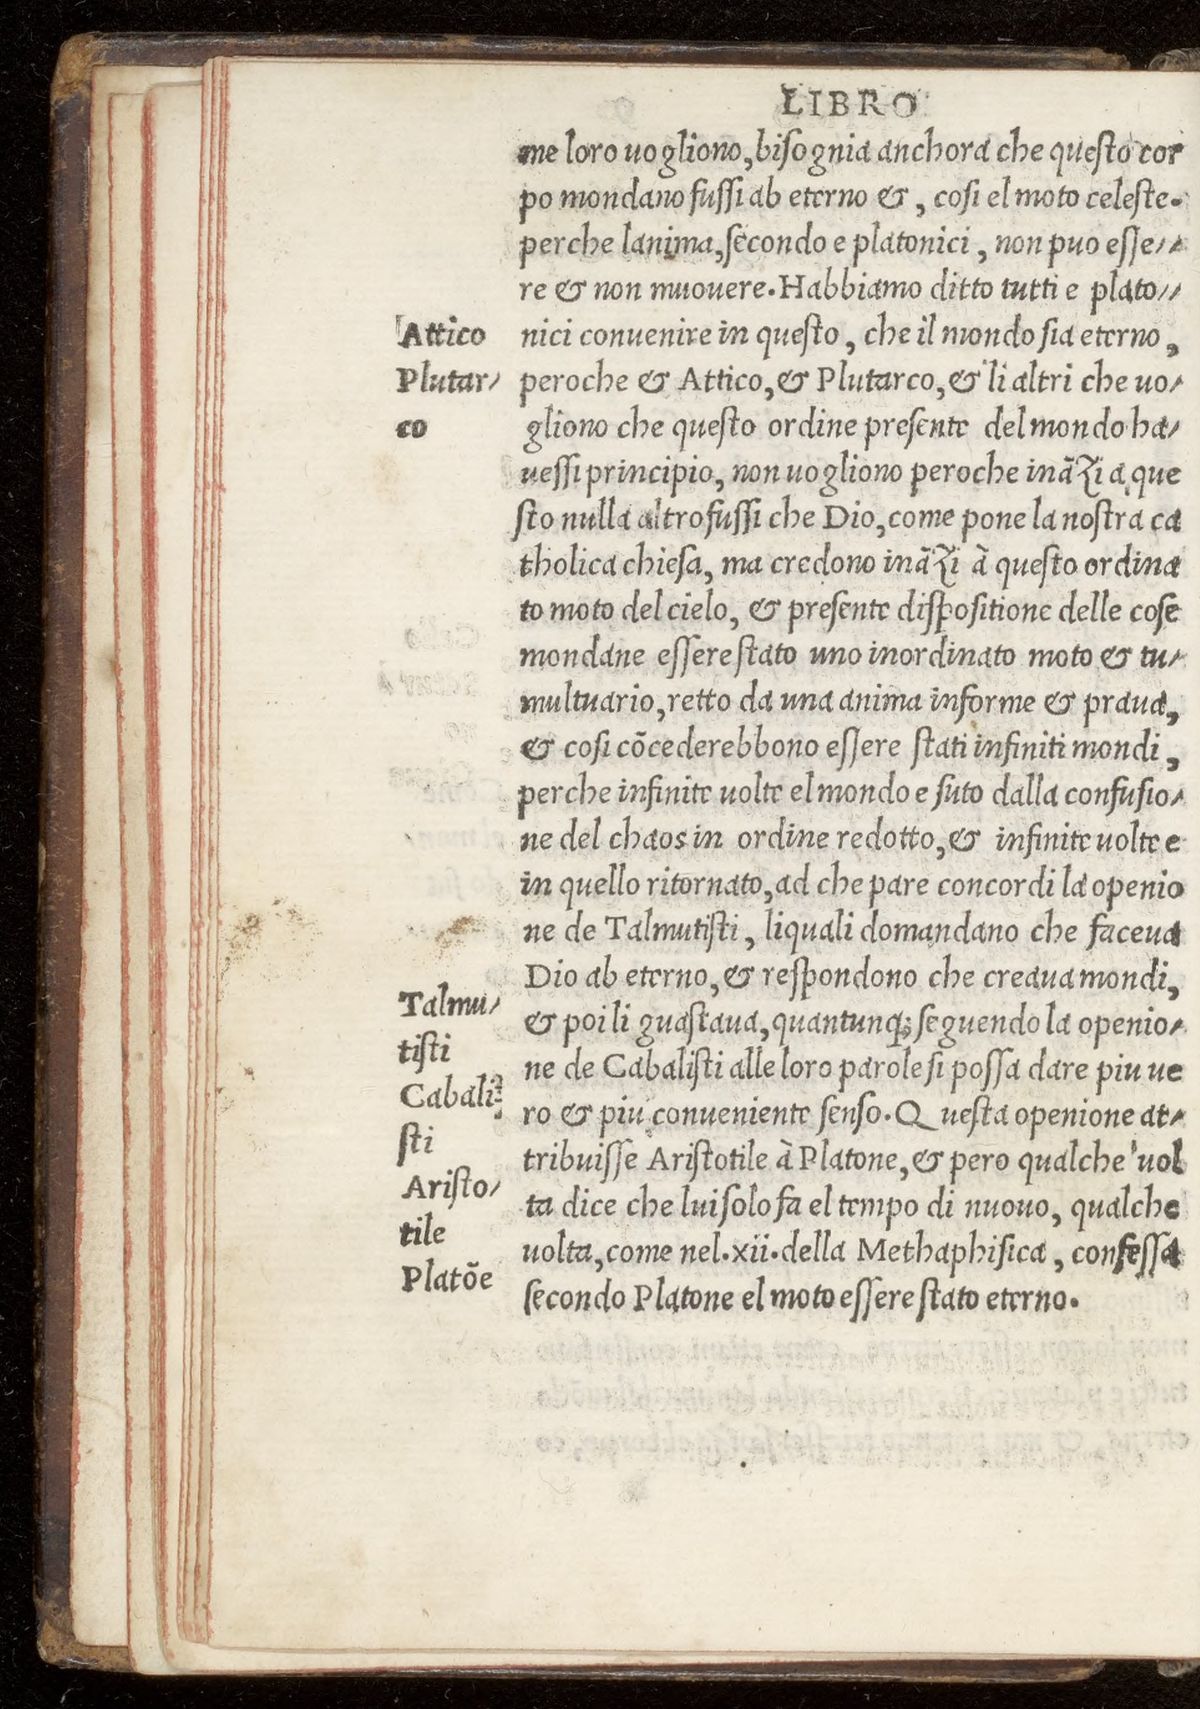 LIBRO
me loro uogliono, bisognia anchora che questo cor
po mondano fussi ab eterno &, cosi el moto celeste.
perche lanima, secondo e platonici, non puo esse//
re & non muouere. Habbiamo ditto tutti e plato//
nici conuenire in questo, che il mondo sia eterno,
peroche & Attico, & Plutarco, & li altri che uo/
gliono che questo ordine presente del mondo ha/
uessi principio, non uogliono peroche inãzi a que
sto nulla altro fussi che Dio, come pone la nostra ca
tholica chiesa, ma credono inãzi à questo ordina
to moto del cielo, & presente dispositione delle cose
mondane essere stato uno inordinato moto & tu/
multuario, retto da una anima informe & praua,
& cosi cõcederebbono essere stati infiniti mondi,
perche infinite uolte el mondo e suto dalla confusio/
ne del chaos in ordine redotto, & infinite uolte e
in quello ritornato, ad che pare concordi la openio
ne de Talmutisti, liquali domandano che faceua
Dio ab eterno, & respondono che creaua mondi,
& poi li guastaua, quantunq; seguendo la openio/
ne de Cabalisti alle loro parole si possa dare piu ue
ro & piu conueniente senso. Questa openione at/
tribuisse Aristotile à Platone, & pero qualche uol
ta dice che lui solo fa el tempo di nuouo, qualche
uolta, come nel .xii. della Methaphisica, confessa
secondo Platone el moto essere stato eterno.
Attico
Plutar/
co
Talmu/
tisti
Cabali
sti
Aristo/
tile
Platõe